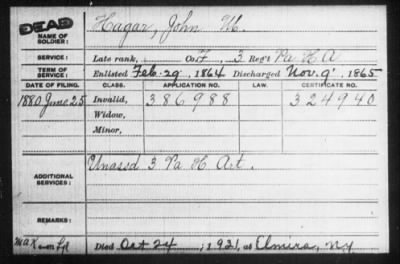 DEAD
NAME OF SOLDIER: Hagar, John M.
SERVICE: Late rank, Co. F, 3 Reg't Pa H A
TERM OF SERVICE: Enlisted Feb. 29, 1864 Discharged Nov. 9, 1865
DATE OF FILING. CLASS. APPLICATION NO. LAW. CERTIFICATE NO.
1880 June 25 Invalid, 386988 324940
Widow,
Minor,
ADDITIONAL SERVICES: Unassd 3 Pa H Art.
REMARKS:
Died Oct 24, 1921, at Elmira, NY